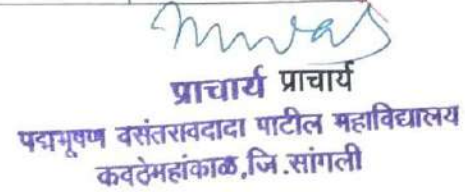 प्राचार्य प्राचार्य
पद्मभूषण वसंतरावदादा पाटील महाविद्यालय
कवठेमहांकाळ,जि.सांगली